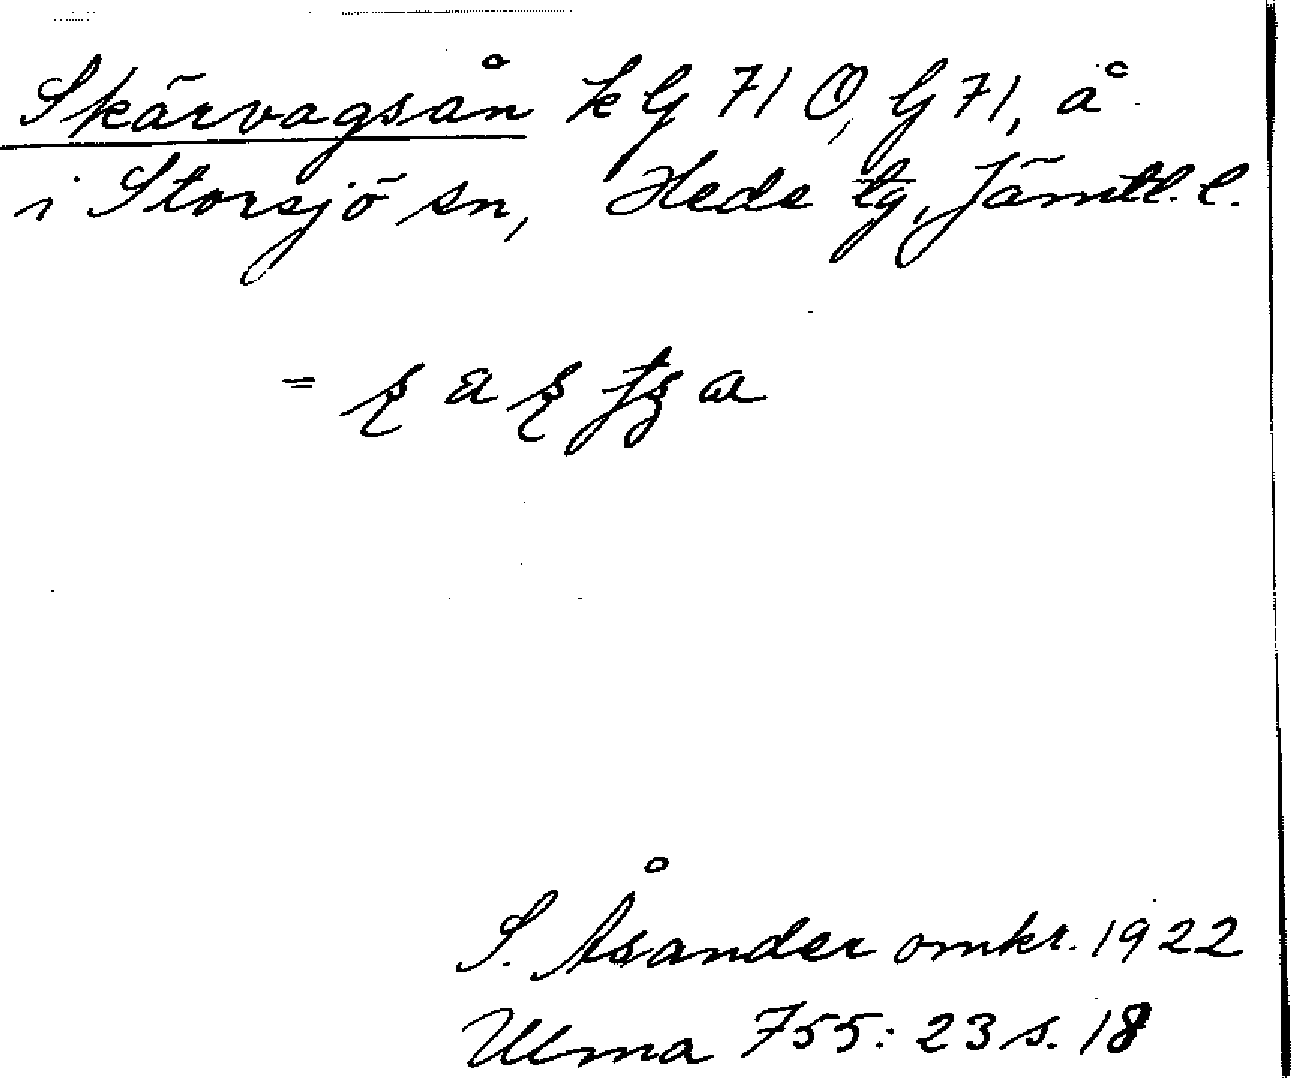 Skärvagsån kG 71 Ö, G 71, å
i Storsjö sn, Hede tg, Jämtl. l.
=
S. Åsander omkr. 1922
Ulma 755: 23 s. 18